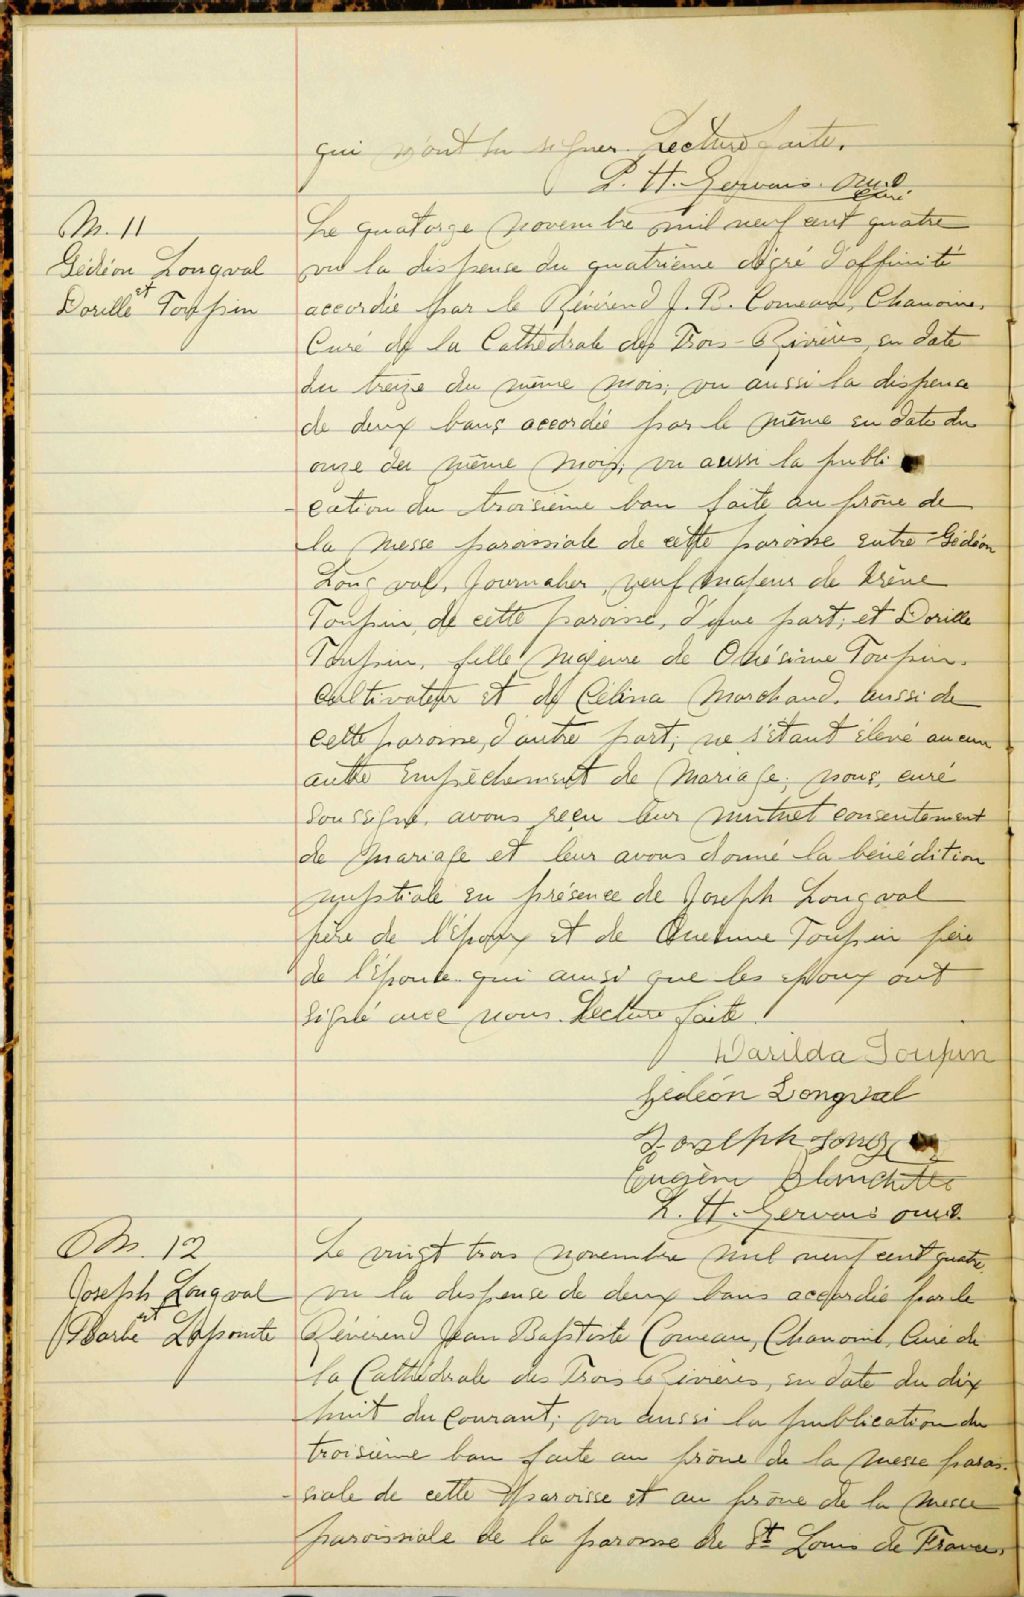 qui n'ont su signer. Lecture faite.
L. H. Gervais. Ptre.
Curé
M. 11
Gédéon Longval
et
Dorille Toupin
Le quatorze novembre mil neuf cent quatre
vu la dispense du quatrième dégré d'affinité
accordée par le Révérend J. B. Comeau, Chanoine,
Curé de la Cathédrale des Trois-Rivières, en date
du treize du même mois; vu aussi la dispense
de deux bans accordée par le même en date du
onze du même mois; vu aussi la publi
cation du troisième ban faite au prône de
la messe paroissiale de cette paroisse entre Gédéon
Longval, Journalier, veuf majeur de Irène
Toupin, de cette paroisse, d'une part; et Dorille
Toupin, fille majeure de Onésime Toupin,
cultivateur et de Célina Marchand, aussi de
cette paroisse, d'autre part; ne s'étant élevé aucun
autre empêchement de mariage; nous, curé
soussigné, avons reçu leur mutuel consentement
de mariage et leur avons donné la bénédition
nuptiale en présence de Joseph Longval
père de l'époux et de Onesime Toupin père
de l'épouse qui ainsi que les époux ont
signé avec nous. Lecture faite.
Darilda Toupin
Gédéon Longval
Joseph Long
Eugène Blanchette
L. H. Gervais
M. 12
Joseph Longval
et
Barbe Lapointe
Le vingt trois novembre mil neuf cent quatre,
vu la dispense de deux bans accordée par le
Révérend Jean Baptiste Comeau, Chanoine, Curé de
la Cathédrale des Trois Rivières, en date du dix
huit du courant; vu aussi la publication du
troisième ban faite au prône de la messe parois-
siale de cette paroisse et au prône de la messe
paroissiale de la paroisse de St Louis de France,